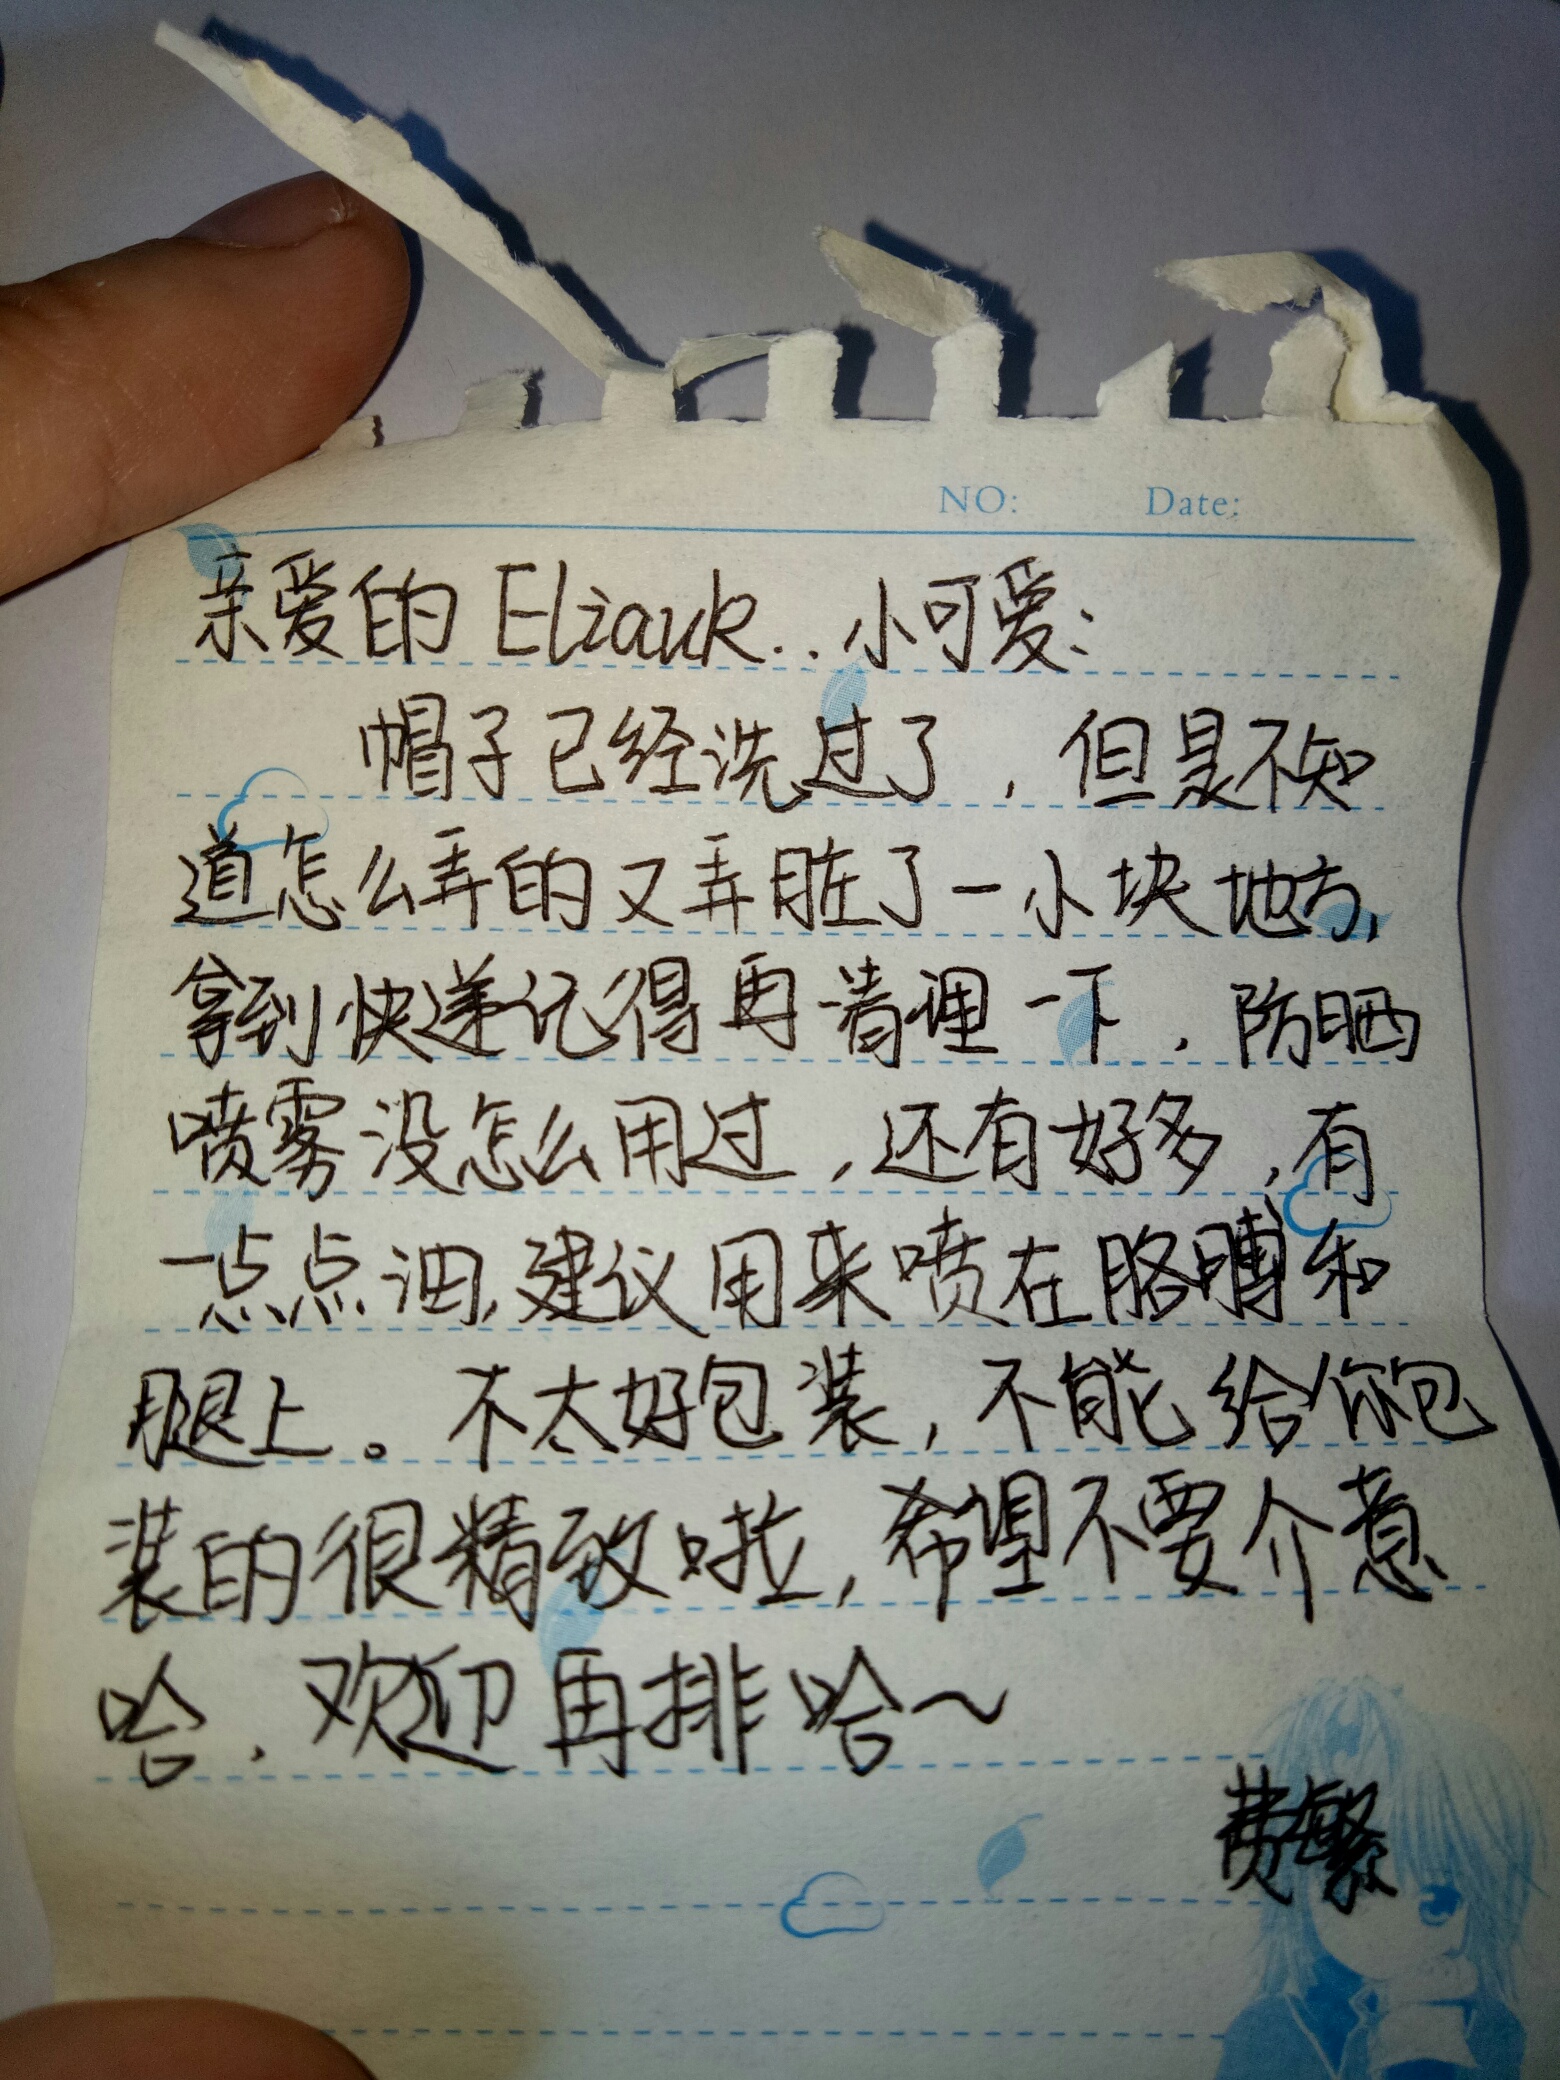 NO: Date:
亲爱的 Eliauk..小可爱:
帽子已经洗过了,但是不知
道怎么弄的又弄脏了一小块地方,
拿到快递记得再清理一下.防晒
喷雾没怎么用过,还有好多,有
一点点油,建议用来喷在胳膊和
腿上。不太好包装,不能给你包
装的很精致啦,希望不要介意
哈.欢迎再排哈~